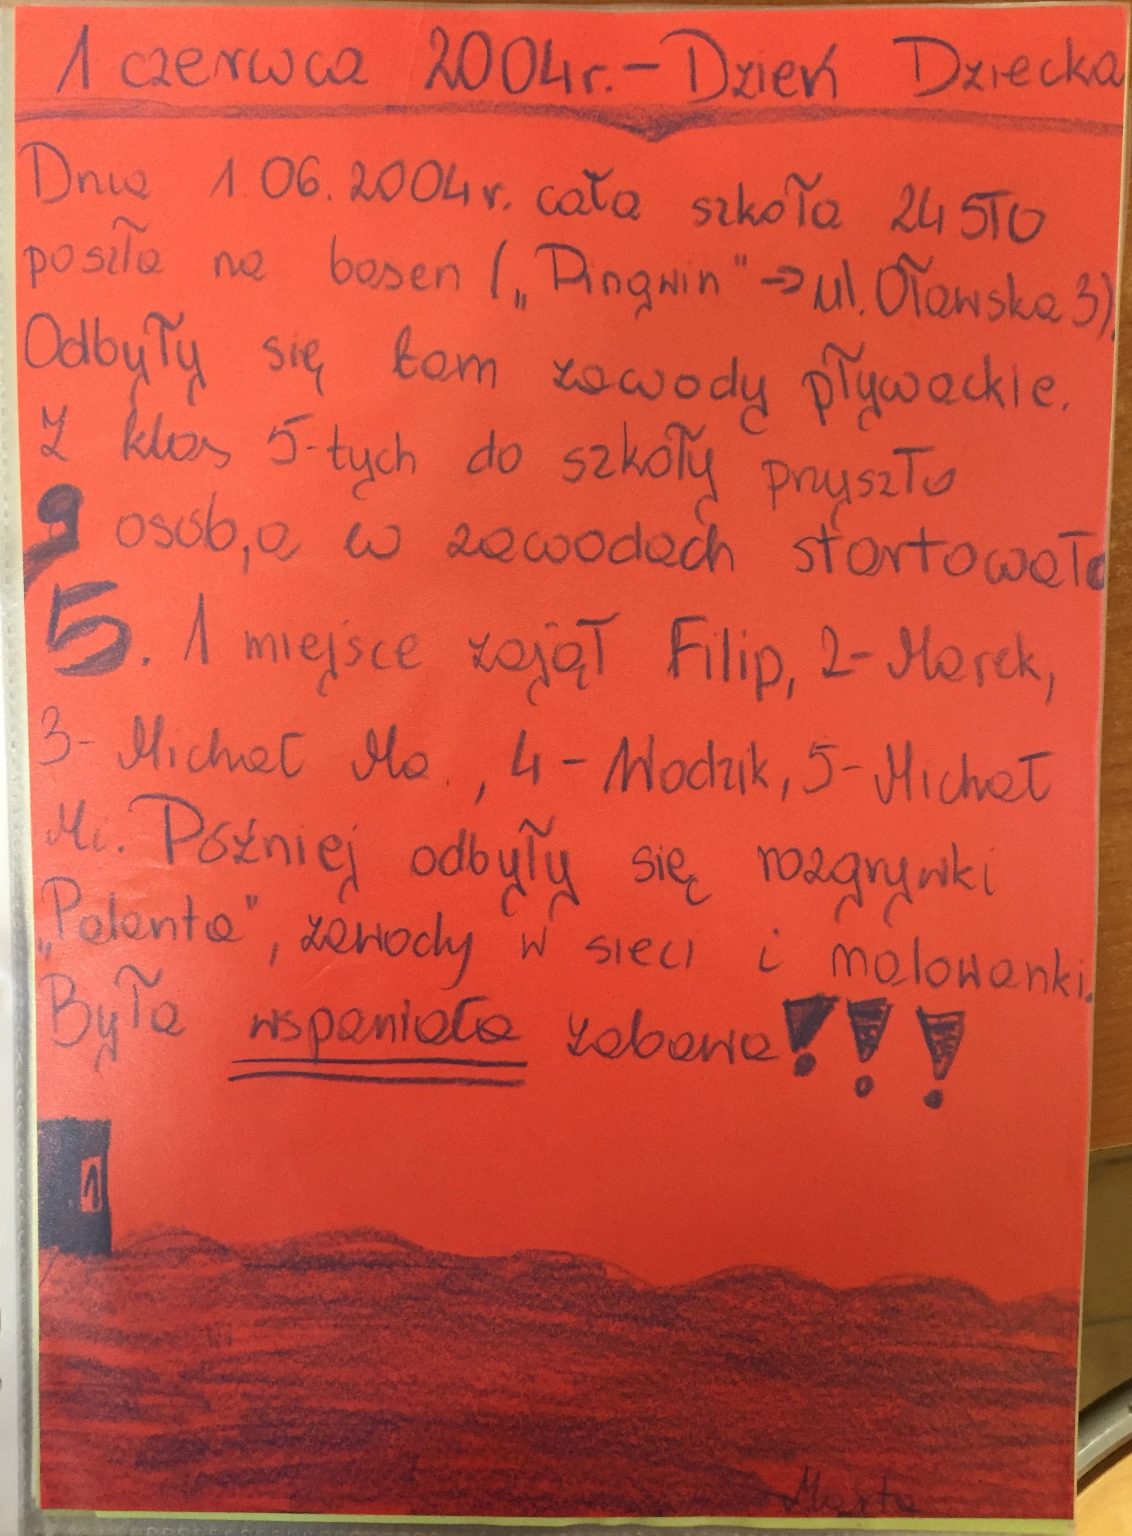 1 czerwca 2004r. - Dzień Dziecka
Dnia 1.06.2004r. cała szkoła 24 STO
poszła na basen („Pingwin" → ul. Oławska 3).
Odbyły się tam zawody pływackie.
Z klas 5-tych do szkoły przyszło
9 osób, a w zawodach startowało
5. 1 miejsce zajął Filip, 2- Marek,
3- Michał Ma., 4 - Włodzik, 5- Michał
Mi. Później odbyły się rozgrywki
„Palanta", zawody w sieci i malowanki.
Była wspaniała zabawa!!!
1
Marta